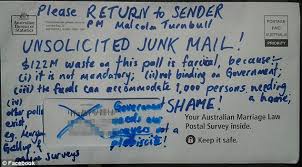 Please RETURN to SENDER
PM Malcolm Turnbull
Australian
Bureau of
Statistics
POSTAGE
PAID
AUSTRALIA
PRIORITY
UNSOLICITED JUNK MAIL!
$122M waste on this poll is farcical, because:
(i) it is not mandatory; (ii) not binding on Government;
(iii) the funds can accommodate 1,000 persons needing
a home;
(iv)
other polls
exist
eg. Newspoll
Gallup &
online surveys
Government
needs our
not a
plebiscite!
SHAME!
Your Australian Marriage Law
Postal Survey inside.
Keep it safe.
© Facebook